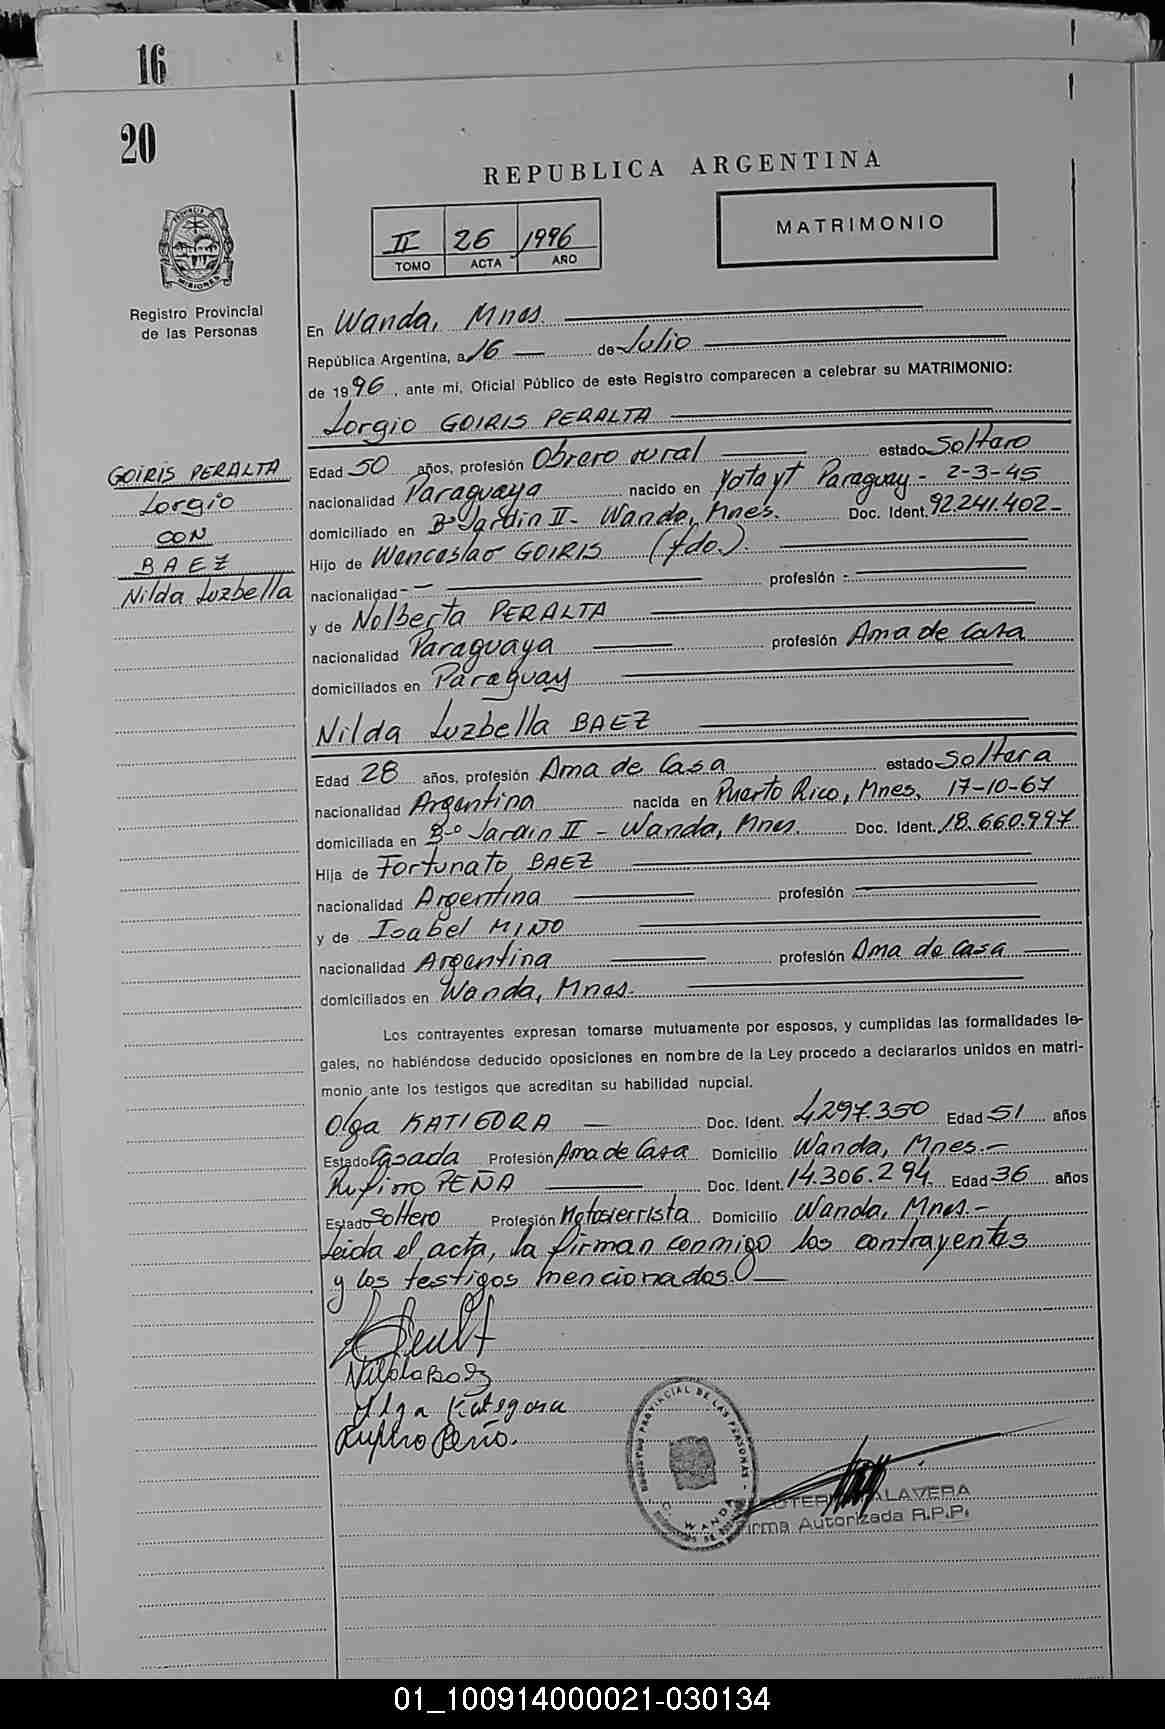 16
20
REPUBLICA ARGENTINA
II 26 1996
TOMO ACTA AÑO
MATRIMONIO
PROVINCIA DE MISIONES
Registro Provincial
de las Personas
En Wanda, Mnes.
República Argentina, a 16 de Julio
de 1996, ante mi, Oficial Público de este Registro comparecen a celebrar su MATRIMONIO:
Lorgio GOIRIS PERALTA
GOIRIS PERALTA
Lorgio
CON
BAEZ
Nilda Luzbella
Edad 50 años, profesión Obrero rural estado Soltero
nacionalidad Paraguaya nacido en Yatayt Paraguay - 2-3-45
domiciliado en Bº Jardin II - Wanda, Mnes. Doc. Ident. 92.241.402-
Hijo de Wenceslao GOIRIS (fdo.).
nacionalidad - profesión -
y de Nolberta PERALTA
nacionalidad Paraguaya profesión Ama de Casa
domiciliados en Paraguay
Nilda Luzbella BAEZ
Edad 28 años, profesión Ama de Casa estado Soltera
nacionalidad Argentina nacida en Puerto Rico, Mnes. 17-10-67
domiciliada en Bº Jardin II - Wanda, Mnes. Doc. Ident. 18.660.997
Hija de Fortunato BAEZ
nacionalidad Argentina profesión
y de Isabel MINO
nacionalidad Argentina profesión Ama de Casa
domiciliados en Wanda, Mnes.
Los contrayentes expresan tomarse mutuamente por esposos, y cumplidas las formalidades le-
gales, no habiéndose deducido oposiciones en nombre de la Ley procedo a declararlos unidos en matri-
monio ante los testigos que acreditan su habilidad nupcial.
Olga KATIGORA - Doc. Ident. 4.297.350 Edad 51 años
Estado Casada Profesión Ama de Casa Domicilio Wanda, Mnes.-
Rufino PEÑA Doc. Ident. 14.306.294 Edad 36 años
Estado Soltero Profesión Motosierrista Domicilio Wanda, Mnes.-
Leida el acta, la firman conmigo los contrayentes
y los testigos mencionados.
Nilda Baez
Olga Kategora
Rufino Peña.
REGISTRO PROVINCIAL DE LAS PERSONAS
WANDA
ALAVERA
Firma Autorizada R.P.P.
01_100914000021-030134